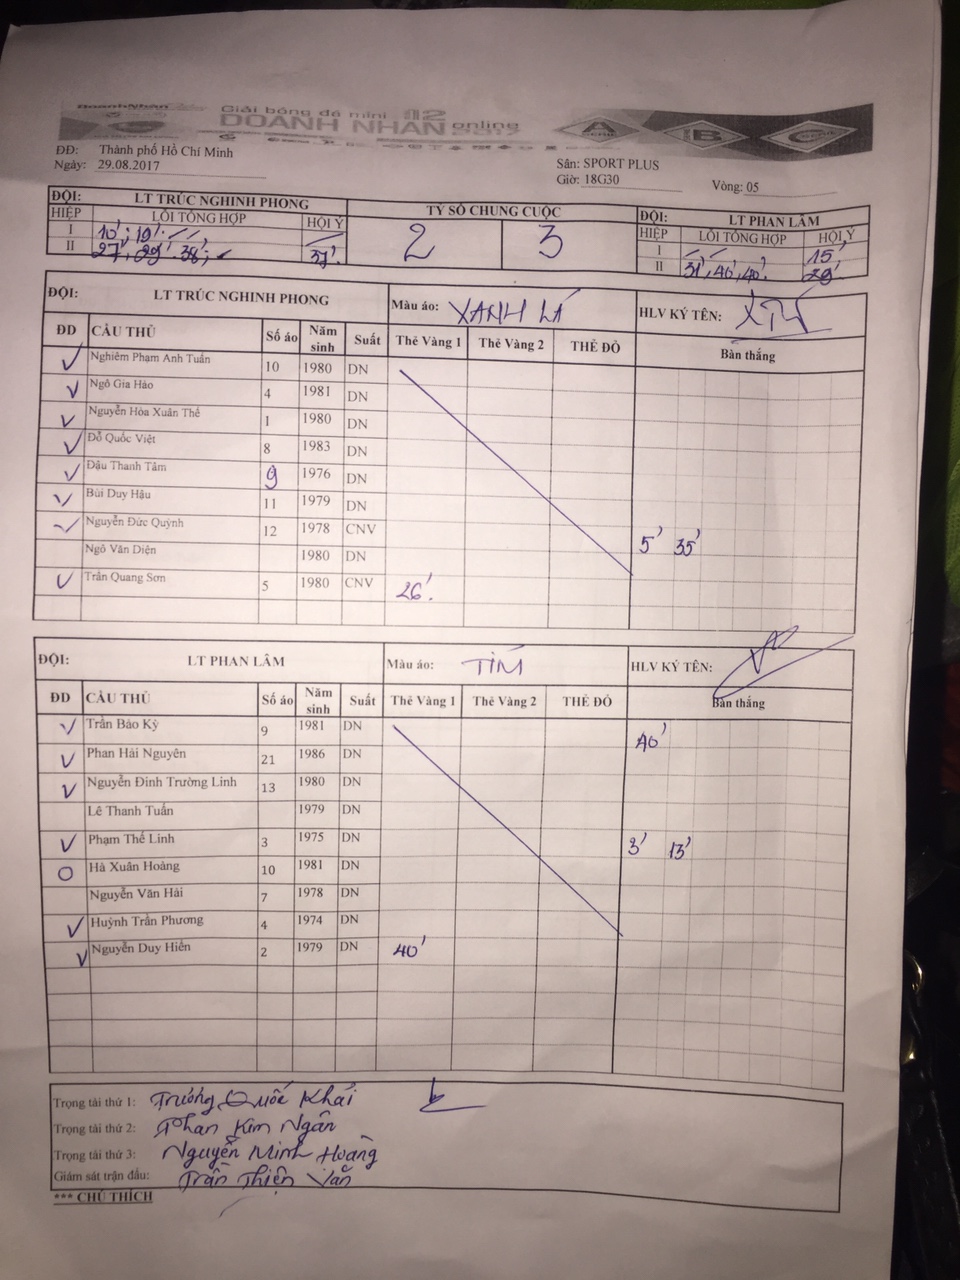 Giải bóng đá mini 12
DOANH NHÂN online
2017
A B C
ĐĐ: Thành phố Hồ Chí Minh
Sân: SPORT PLUS
Ngày: 29.08.2017
Giờ: 18G30
Vòng: 05
ĐỘI: LT TRÚC NGHINH PHONG TỶ SỐ CHUNG CUỘC ĐỘI: LT PHAN LÂM
HIỆP LỖI TỔNG HỢP HỘI Ý 2 3 HIỆP LỖI TỔNG HỢP HỘI Ý
I 10'; 19' I 15'
II 27', 29' 38'; 37'. II 31', 40', 40'. 29'
ĐỘI: LT TRÚC NGHINH PHONG Màu áo: XANH LÁ HLV KÝ TÊN:
ĐD CẦU THỦ Số áo Năm sinh Suất Thẻ Vàng 1 Thẻ Vàng 2 THẺ ĐỎ Bàn thắng
Nghiêm Phạm Anh Tuấn 10 1980 DN
Ngô Gia Hào 4 1981 DN
Nguyễn Hòa Xuân Thế 1 1980 DN
Đỗ Quốc Việt 8 1983 DN
Đậu Thanh Tâm 9 1976 DN
Bùi Duy Hậu 11 1979 DN
Nguyễn Đức Quỳnh 12 1978 CNV 5' 35'
Ngô Văn Diện 1980 DN
Trần Quang Sơn 5 1980 CNV 26'.
ĐỘI: LT PHAN LÂM Màu áo: TÍM HLV KÝ TÊN:
ĐD CẦU THỦ Số áo Năm sinh Suất Thẻ Vàng 1 Thẻ Vàng 2 THẺ ĐỎ Bàn thắng
Trần Bảo Kỳ 9 1981 DN 40'
Phan Hải Nguyên 21 1986 DN
Nguyễn Đình Trường Linh 13 1980 DN
Lê Thanh Tuấn 1979 DN
Phạm Thế Linh 3 1975 DN 3' 13'
Hà Xuân Hoàng 10 1981 DN
Nguyễn Văn Hải 7 1978 DN
Huỳnh Trần Phương 4 1974 DN
Nguyễn Duy Hiển 2 1979 DN 40'
Trọng tài thứ 1: Trương Quốc Khải
Trọng tài thứ 2: Phan Kim Ngân
Trọng tài thứ 3: Nguyễn Minh Hoàng
Giám sát trận đấu: Trần Thiện Văn
*** CHÚ THÍCH